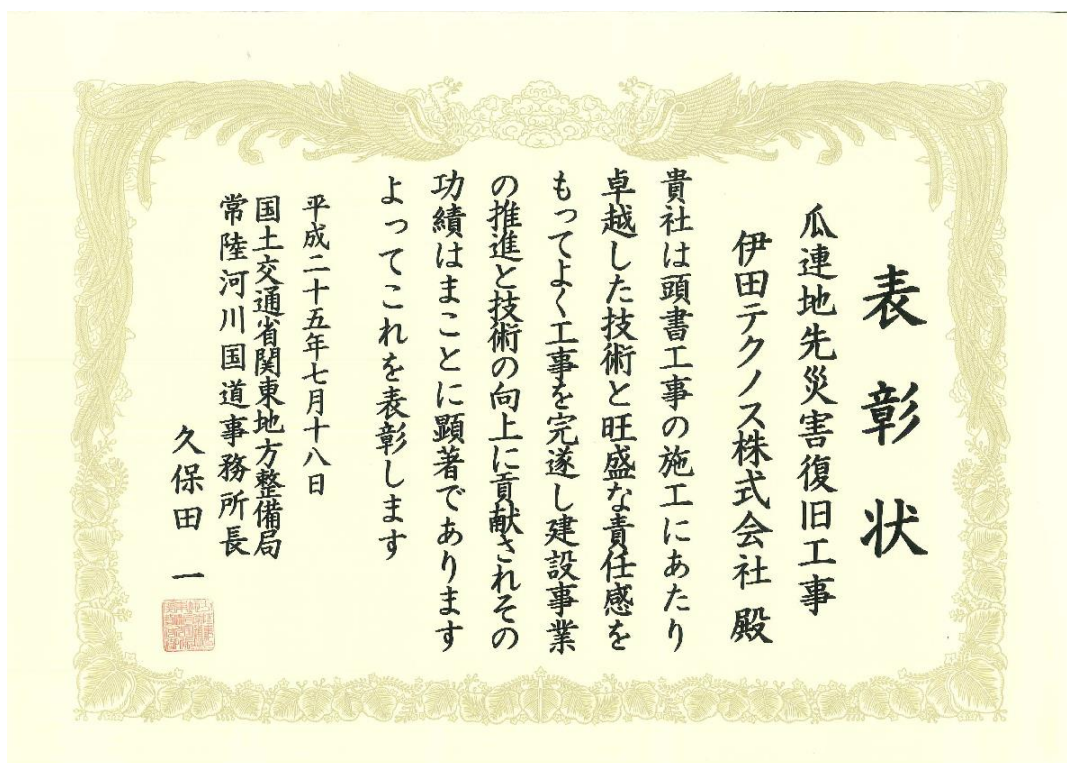 表彰状
瓜連地先災害復旧工事
伊田テクノス株式会社 殿
貴社は頭書工事の施工にあたり
卓越した技術と旺盛な責任感を
もってよく工事を完遂し建設事業
の推進と技術の向上に貢献されその
功績はまことに顕著であります
よってこれを表彰します
平成二十五年七月十八日
国土交通省関東地方整備局
常陸河川国道事務所長
久保田 一